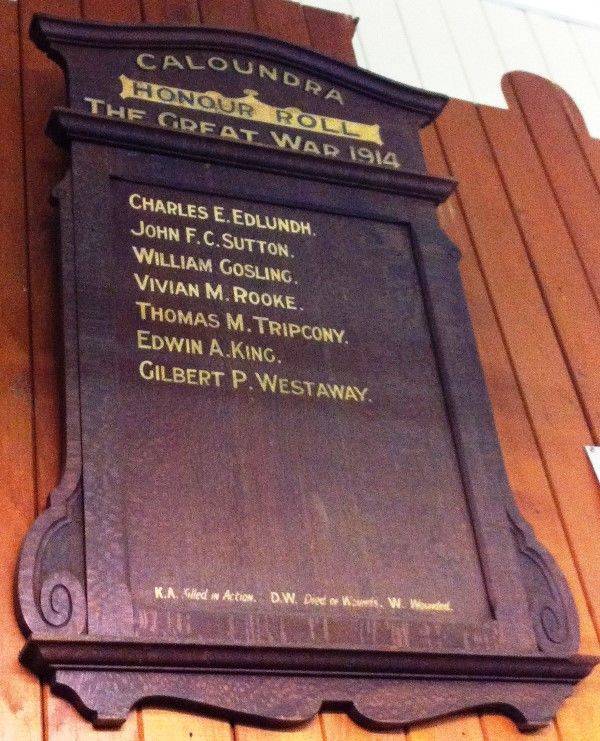 CALOUNDRA
HONOUR ROLL
THE GREAT WAR 1914
CHARLES E. EDLUNDH.
JOHN F. C. SUTTON.
WILLIAM GOSLING.
VIVIAN M. ROOKE.
THOMAS M. TRIPCONY.
EDWIN A. KING.
GILBERT P. WESTAWAY.
K.A. Killed in Action. D.W. Died of Wounds. W. Wounded.